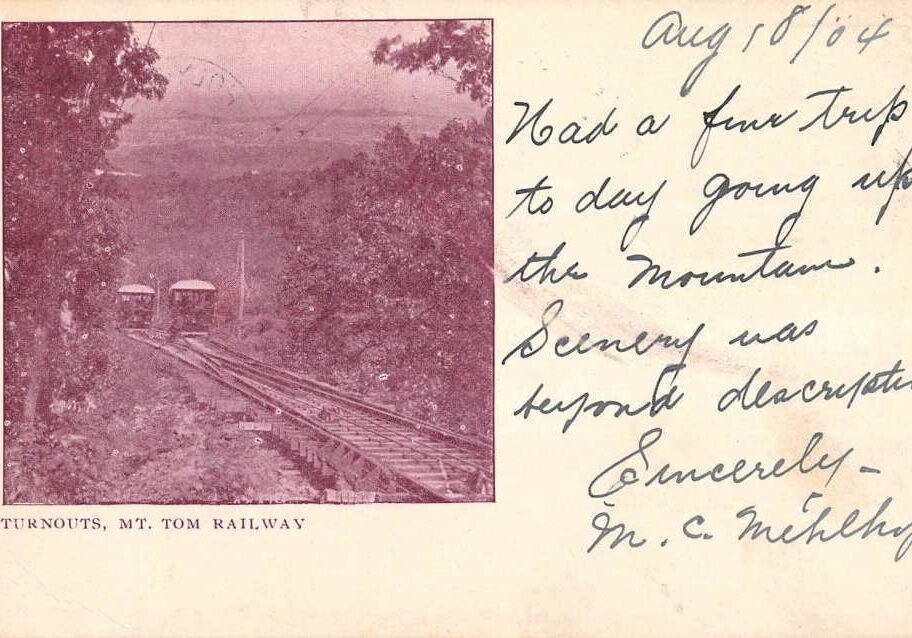 Aug 18/04
Had a fine trip
to day going up
the mountain.
Scenery was
beyond
Sincerely -
M. C.
TURNOUTS, MT. TOM RAILWAY